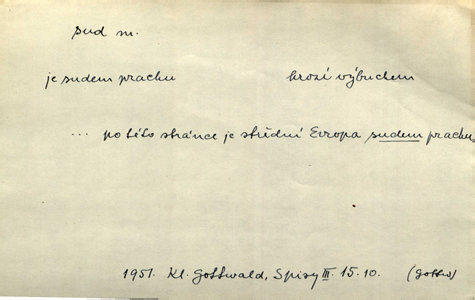 sud m.
je sudem prachu hrozí výbuchem
... po této stránce je střední Evropa sudem prachu.
1951. Kl. Gottwald, Spisy III. 15.10. (Gottw)